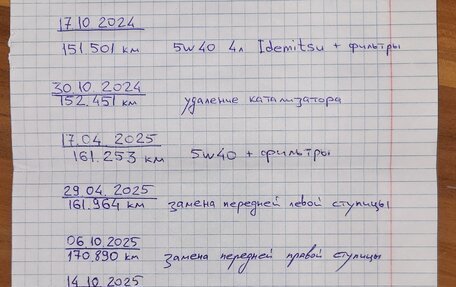 17.10 2024
151.501 км 5w40 4л Idemitsu + фильтры
30.10.2024
152.451 км удаление катализатора
17.04.2025
161.253 км 5w40 + фильтры
29.04.2025
161.964 км замена передней левой ступицы
06.10.2025
170.890 км замена передней правой ступицы
14.10.2025